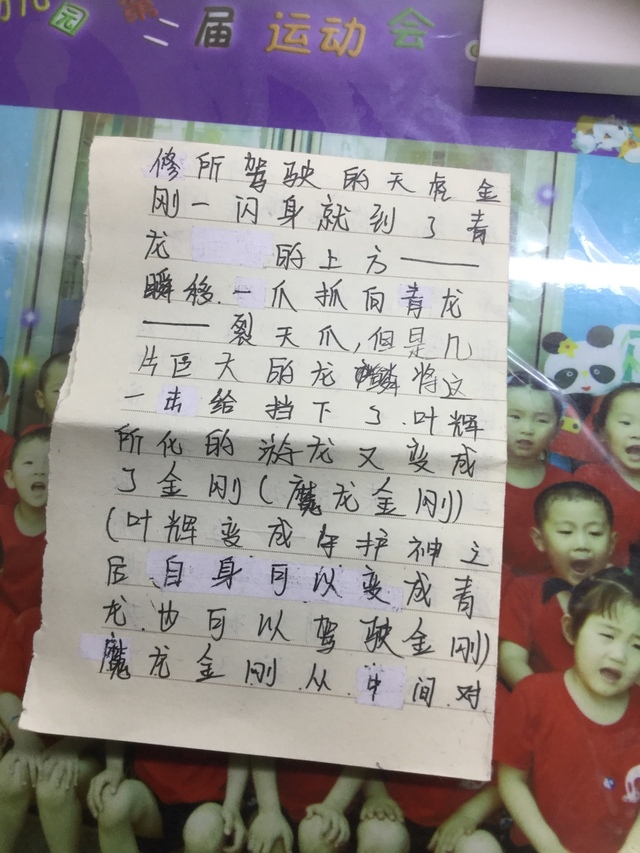 园 第二届运动会
修所驾驶的天虎金
刚一闪身就到了青
龙 的上方——
瞬移.一爪抓向青龙
——裂天爪,但是几
片巨大的龙鳞将这
一击给挡下了.叶辉
所化的游龙又变成
了金刚(魔龙金刚)
(叶辉变成守护神之
后自身可以变成青
龙.也可以驾驶金刚)
魔龙金刚.从.中间.对